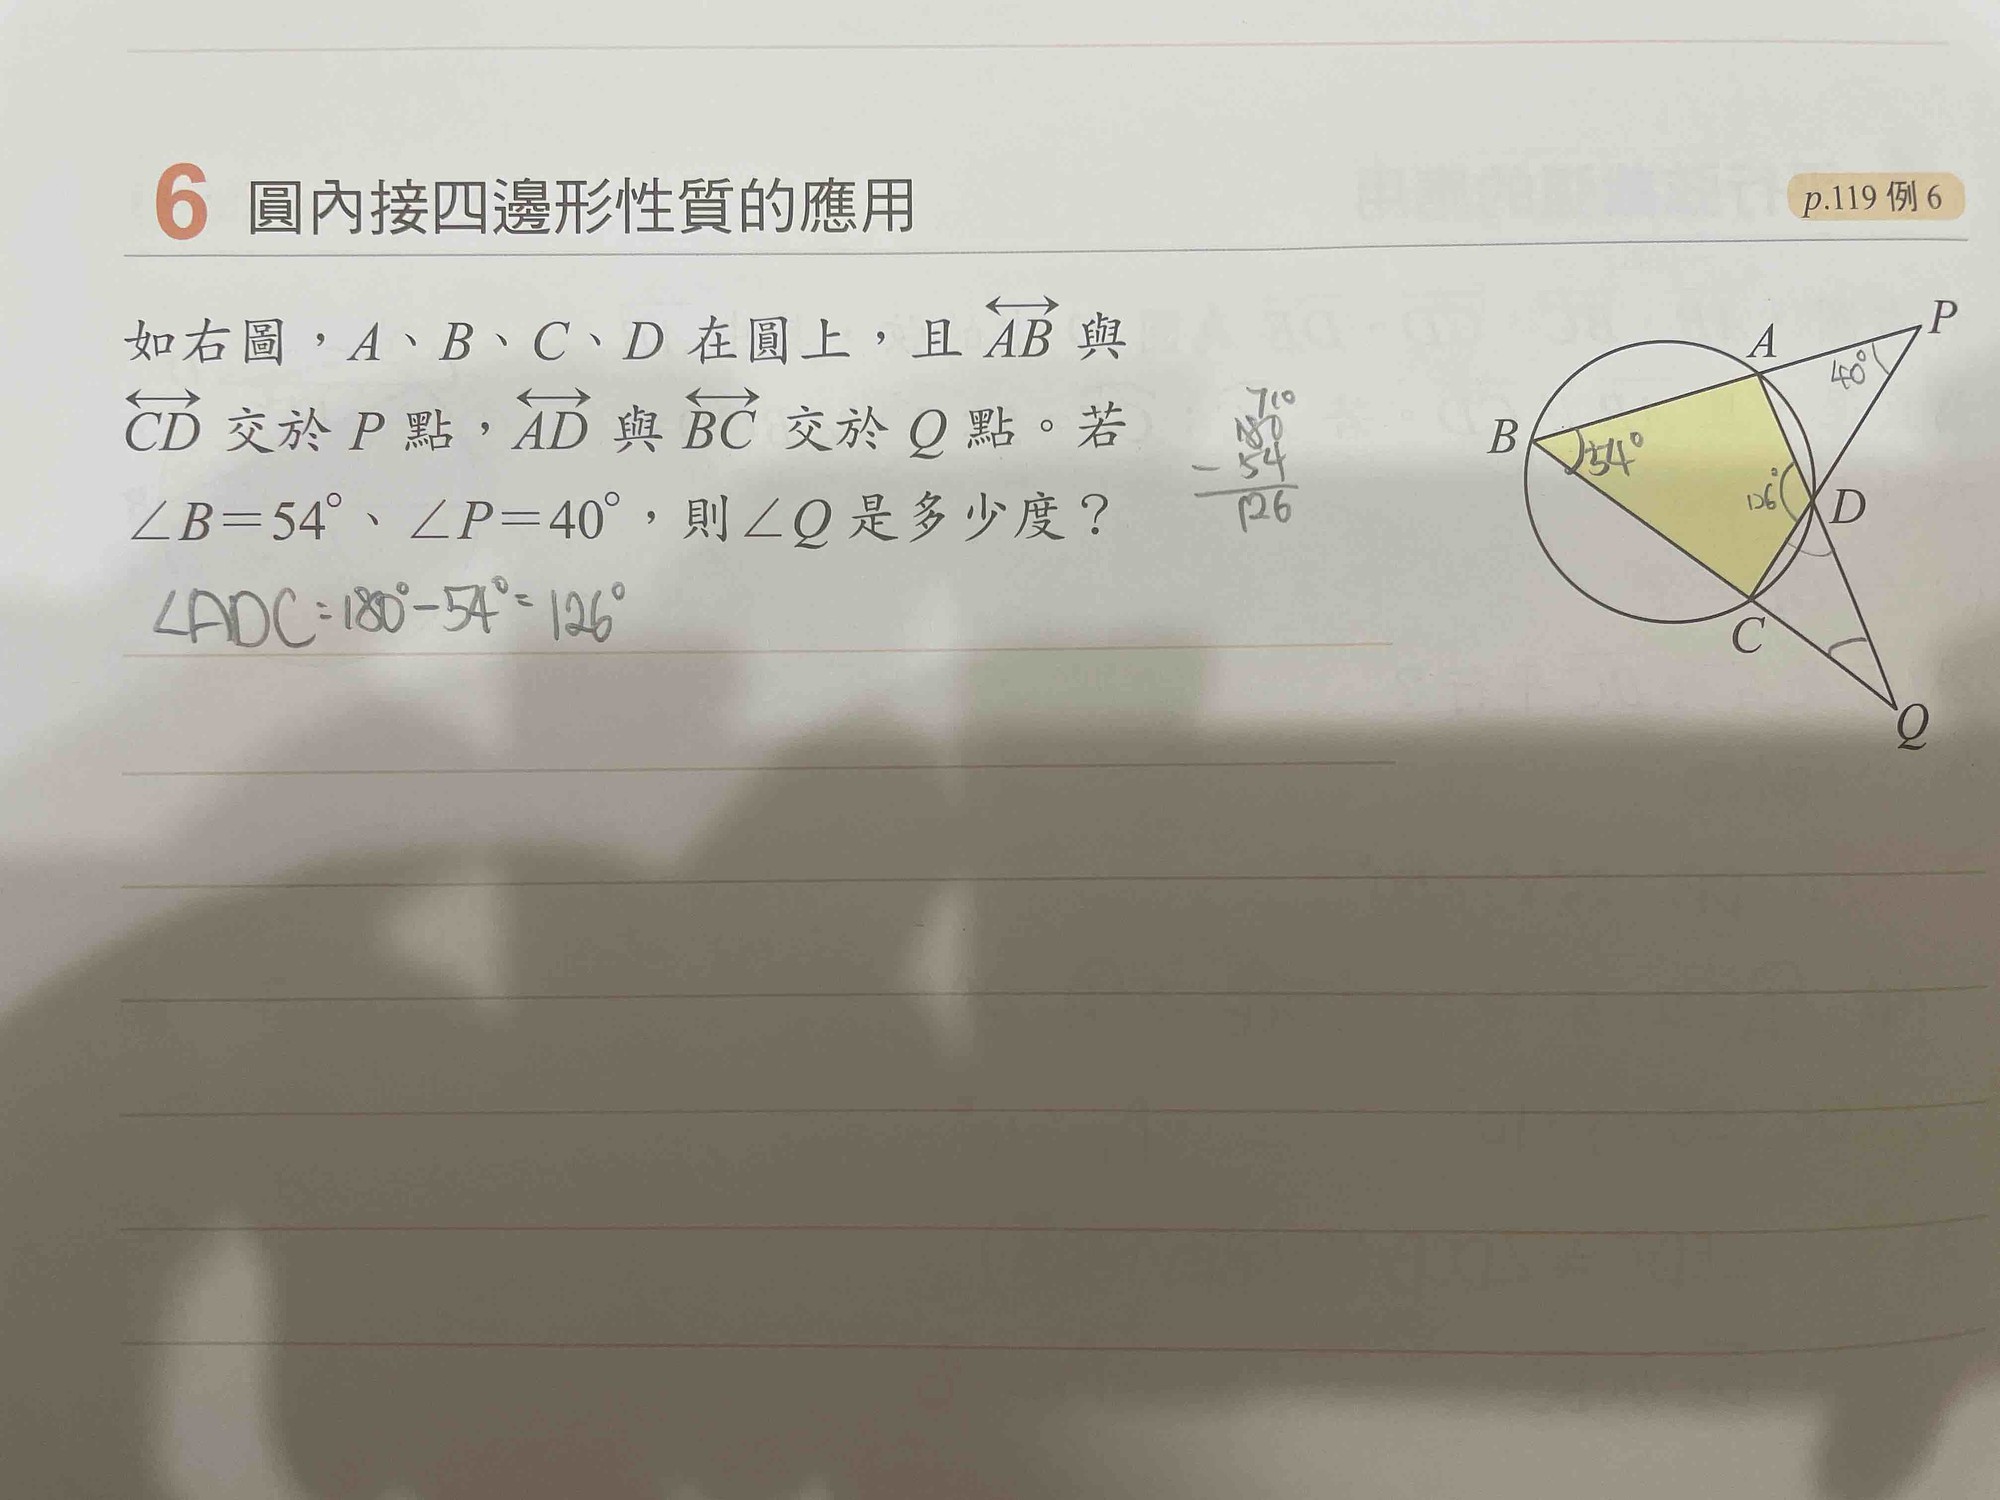 6 圓內接四邊形性質的應用
p.119 例 6
如右圖，A、B、C、D 在圓上，且 AB 與
CD 交於 P 點，AD 與 BC 交於 Q 點。若
∠B＝54°、∠P＝40°，則∠Q 是多少度？
∠ADC=180°-54°=126°
710
180
- 54
126
P
A
40°
B
54°
126°
D
C
Q